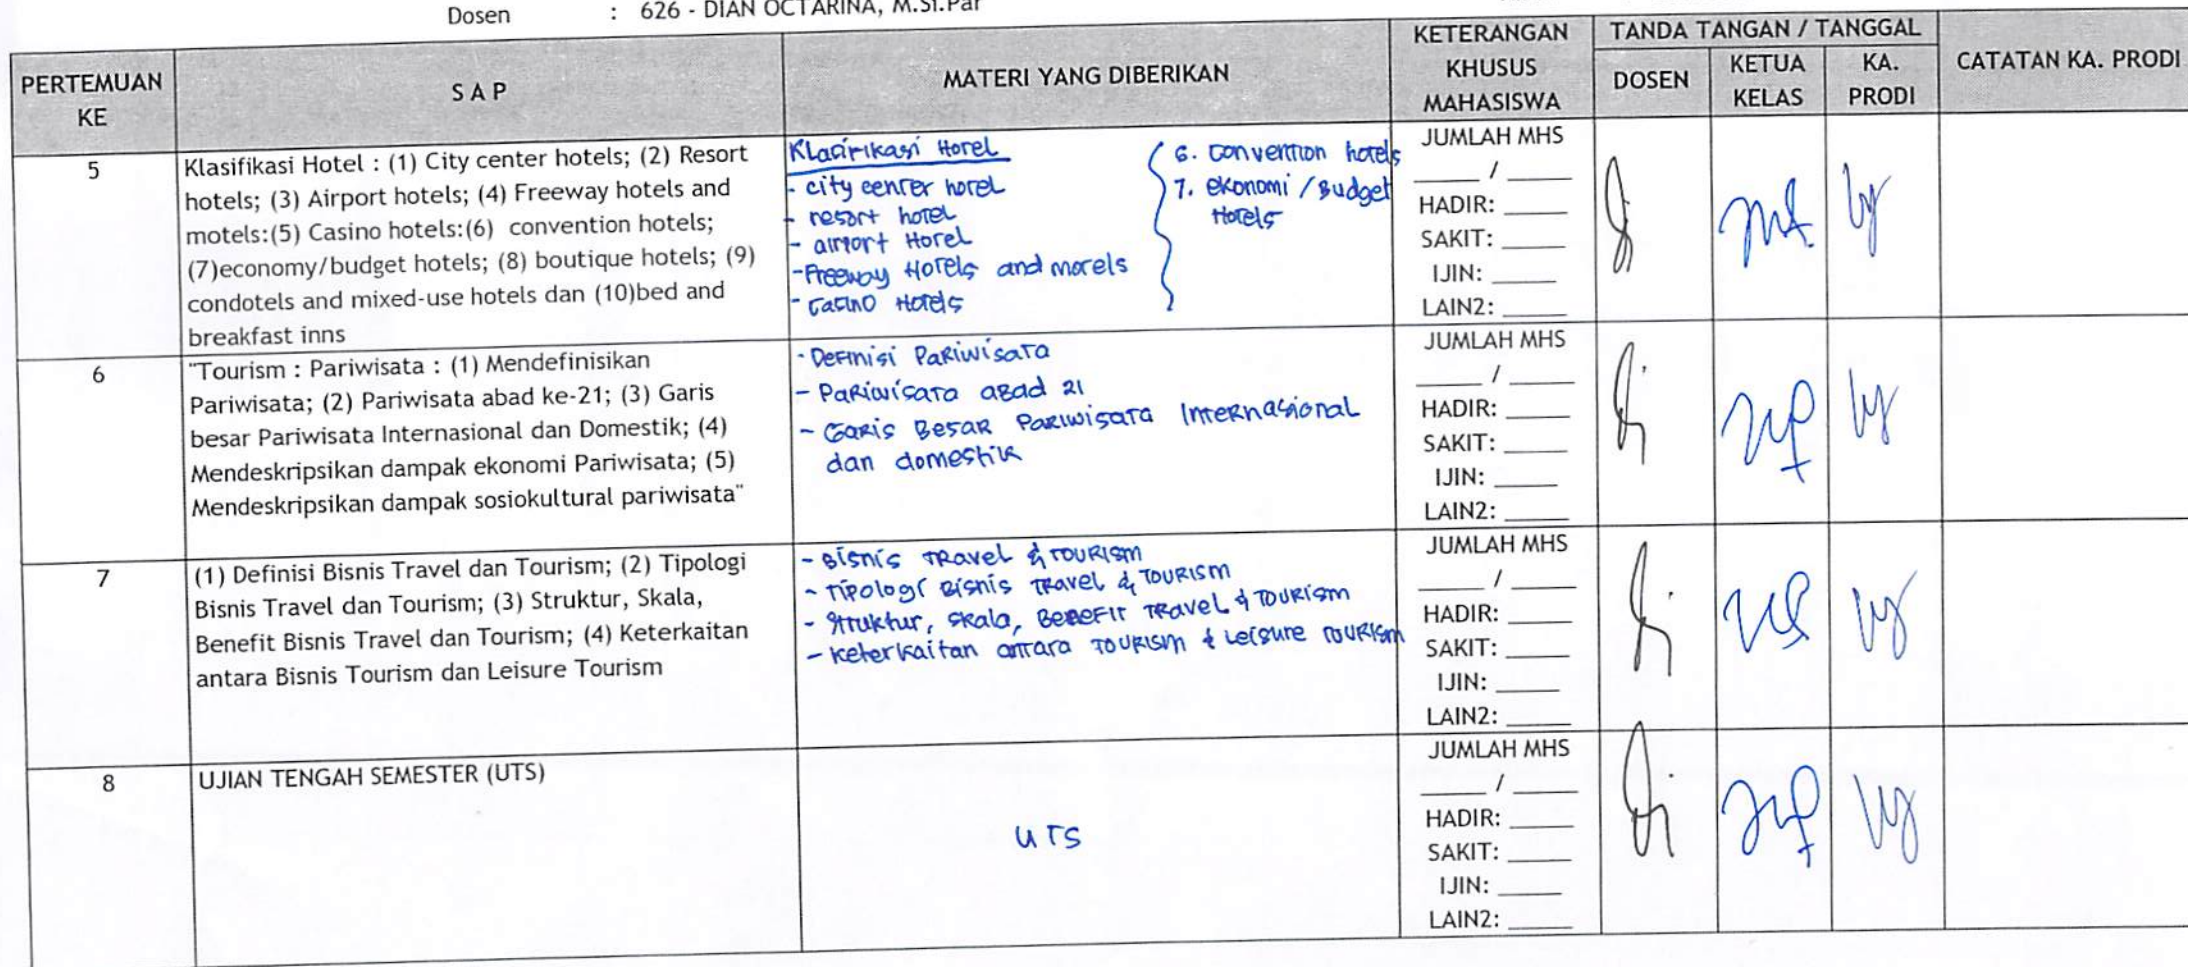 Dosen : 626 - DIAN OCTARINA, M.Si.Par
PERTEMUAN KE
S A P
MATERI YANG DIBERIKAN
KETERANGAN KHUSUS MAHASISWA
TANDA TANGAN / TANGGAL
DOSEN
KETUA KELAS
KA. PRODI
CATATAN KA. PRODI
5
Klasifikasi Hotel : (1) City center hotels; (2) Resort
hotels; (3) Airport hotels; (4) Freeway hotels and
motels:(5) Casino hotels:(6) convention hotels;
(7)economy/budget hotels; (8) boutique hotels; (9)
condotels and mixed-use hotels dan (10)bed and
breakfast inns
Klasifikasi Hotel
- city center hotel
- resort hotel
- airport Hotel
- Freeway Hotels and motels
- Casino Hotels
6. Convention hotels
7. ekonomi / Budget
Hotels
JUMLAH MHS
____ / ____
HADIR: ____
SAKIT: ____
IJIN: ____
LAIN2: ____
6
"Tourism : Pariwisata : (1) Mendefinisikan
Pariwisata; (2) Pariwisata abad ke-21; (3) Garis
besar Pariwisata Internasional dan Domestik; (4)
Mendeskripsikan dampak ekonomi Pariwisata; (5)
Mendeskripsikan dampak sosiokultural pariwisata"
- Definisi Pariwisata
- Pariwisata abad 21
- Garis Besar Pariwisata Internasional
dan domestik
JUMLAH MHS
____ / ____
HADIR: ____
SAKIT: ____
IJIN: ____
LAIN2: ____
7
(1) Definisi Bisnis Travel dan Tourism; (2) Tipologi
Bisnis Travel dan Tourism; (3) Struktur, Skala,
Benefit Bisnis Travel dan Tourism; (4) Keterkaitan
antara Bisnis Tourism dan Leisure Tourism
- Bisnis Travel & Tourism
- Tipologi Bisnis Travel & Tourism
- Struktur, Skala, Benefit Travel & Tourism
- Keterkaitan antara Tourism & Leisure Tourism
JUMLAH MHS
____ / ____
HADIR: ____
SAKIT: ____
IJIN: ____
LAIN2: ____
8
UJIAN TENGAH SEMESTER (UTS)
UTS
JUMLAH MHS
____ / ____
HADIR: ____
SAKIT: ____
IJIN: ____
LAIN2: ____